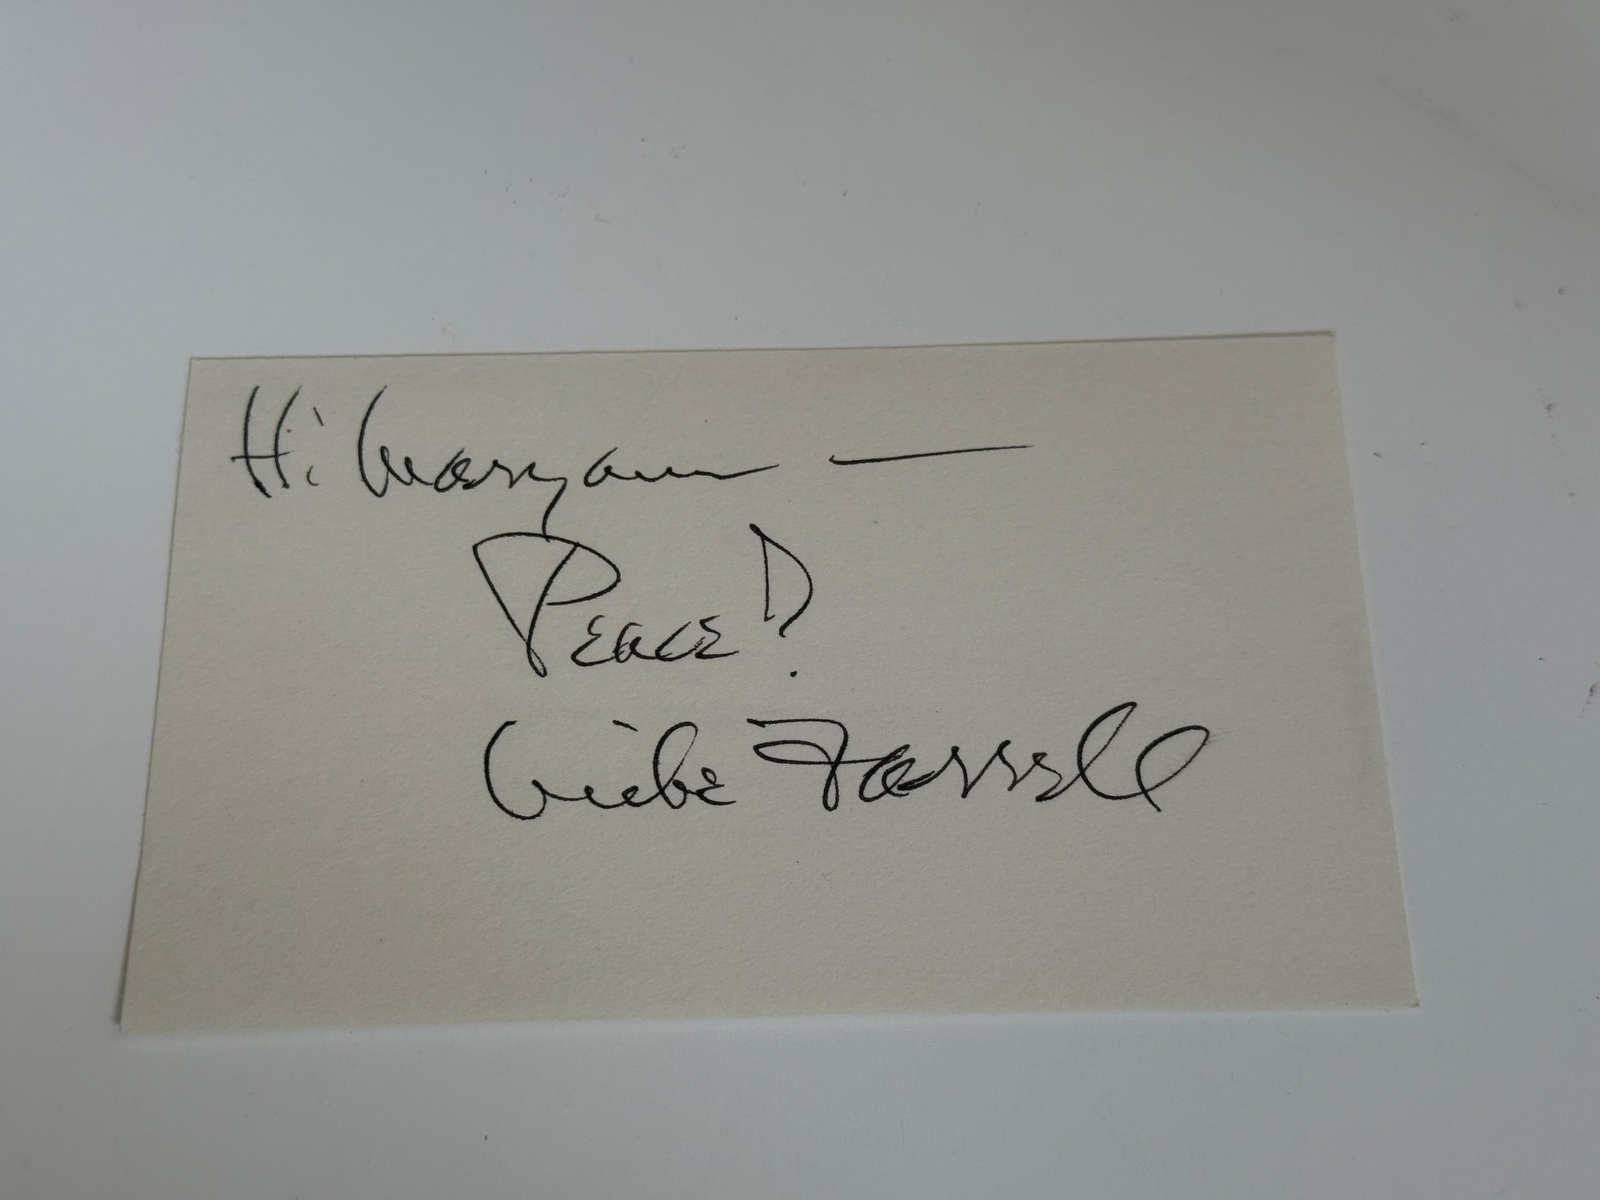 Hi Maryann —
Peace!
Mike Farrell